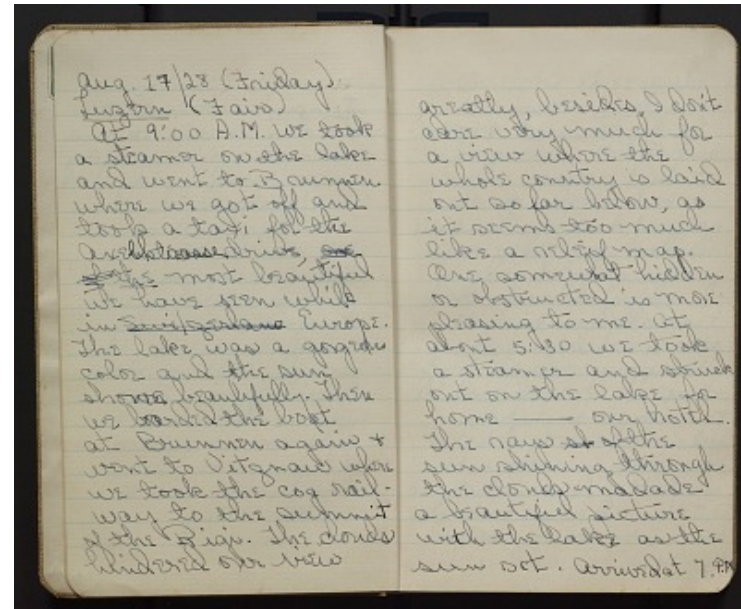 Aug. 17/28 (Friday).
Luzern (Fair)
At 9:00 A.M. we took
a steamer on the lake
and went to Brunnen
where we got off and
took a taxi for the
Axenstrasse drive, one
of the most beautiful
we have seen while
in Switzerland Europe.
The lake was a gorgeous
color and the sun
shone beautifully. Then
we boarded the boat
at Brunnen again &
went to Vitznau where
we took the cog rail-
way to the summit
of the Rigi. The clouds
hindered our view
greatly, besides, I don't
care very much for
a view where the
whole country is laid
out so far below, as
it seems too much
like a relief map.
One somewhat hidden
or obstructed is more
pleasing to me. At
about 5:30 we took
a steamer and struck
out on the lake for
home — our hotel.
The rays of the
sun shining through
the clouds made
a beautiful picture
with the lake as the
sun set. Arrived at 7. P.M